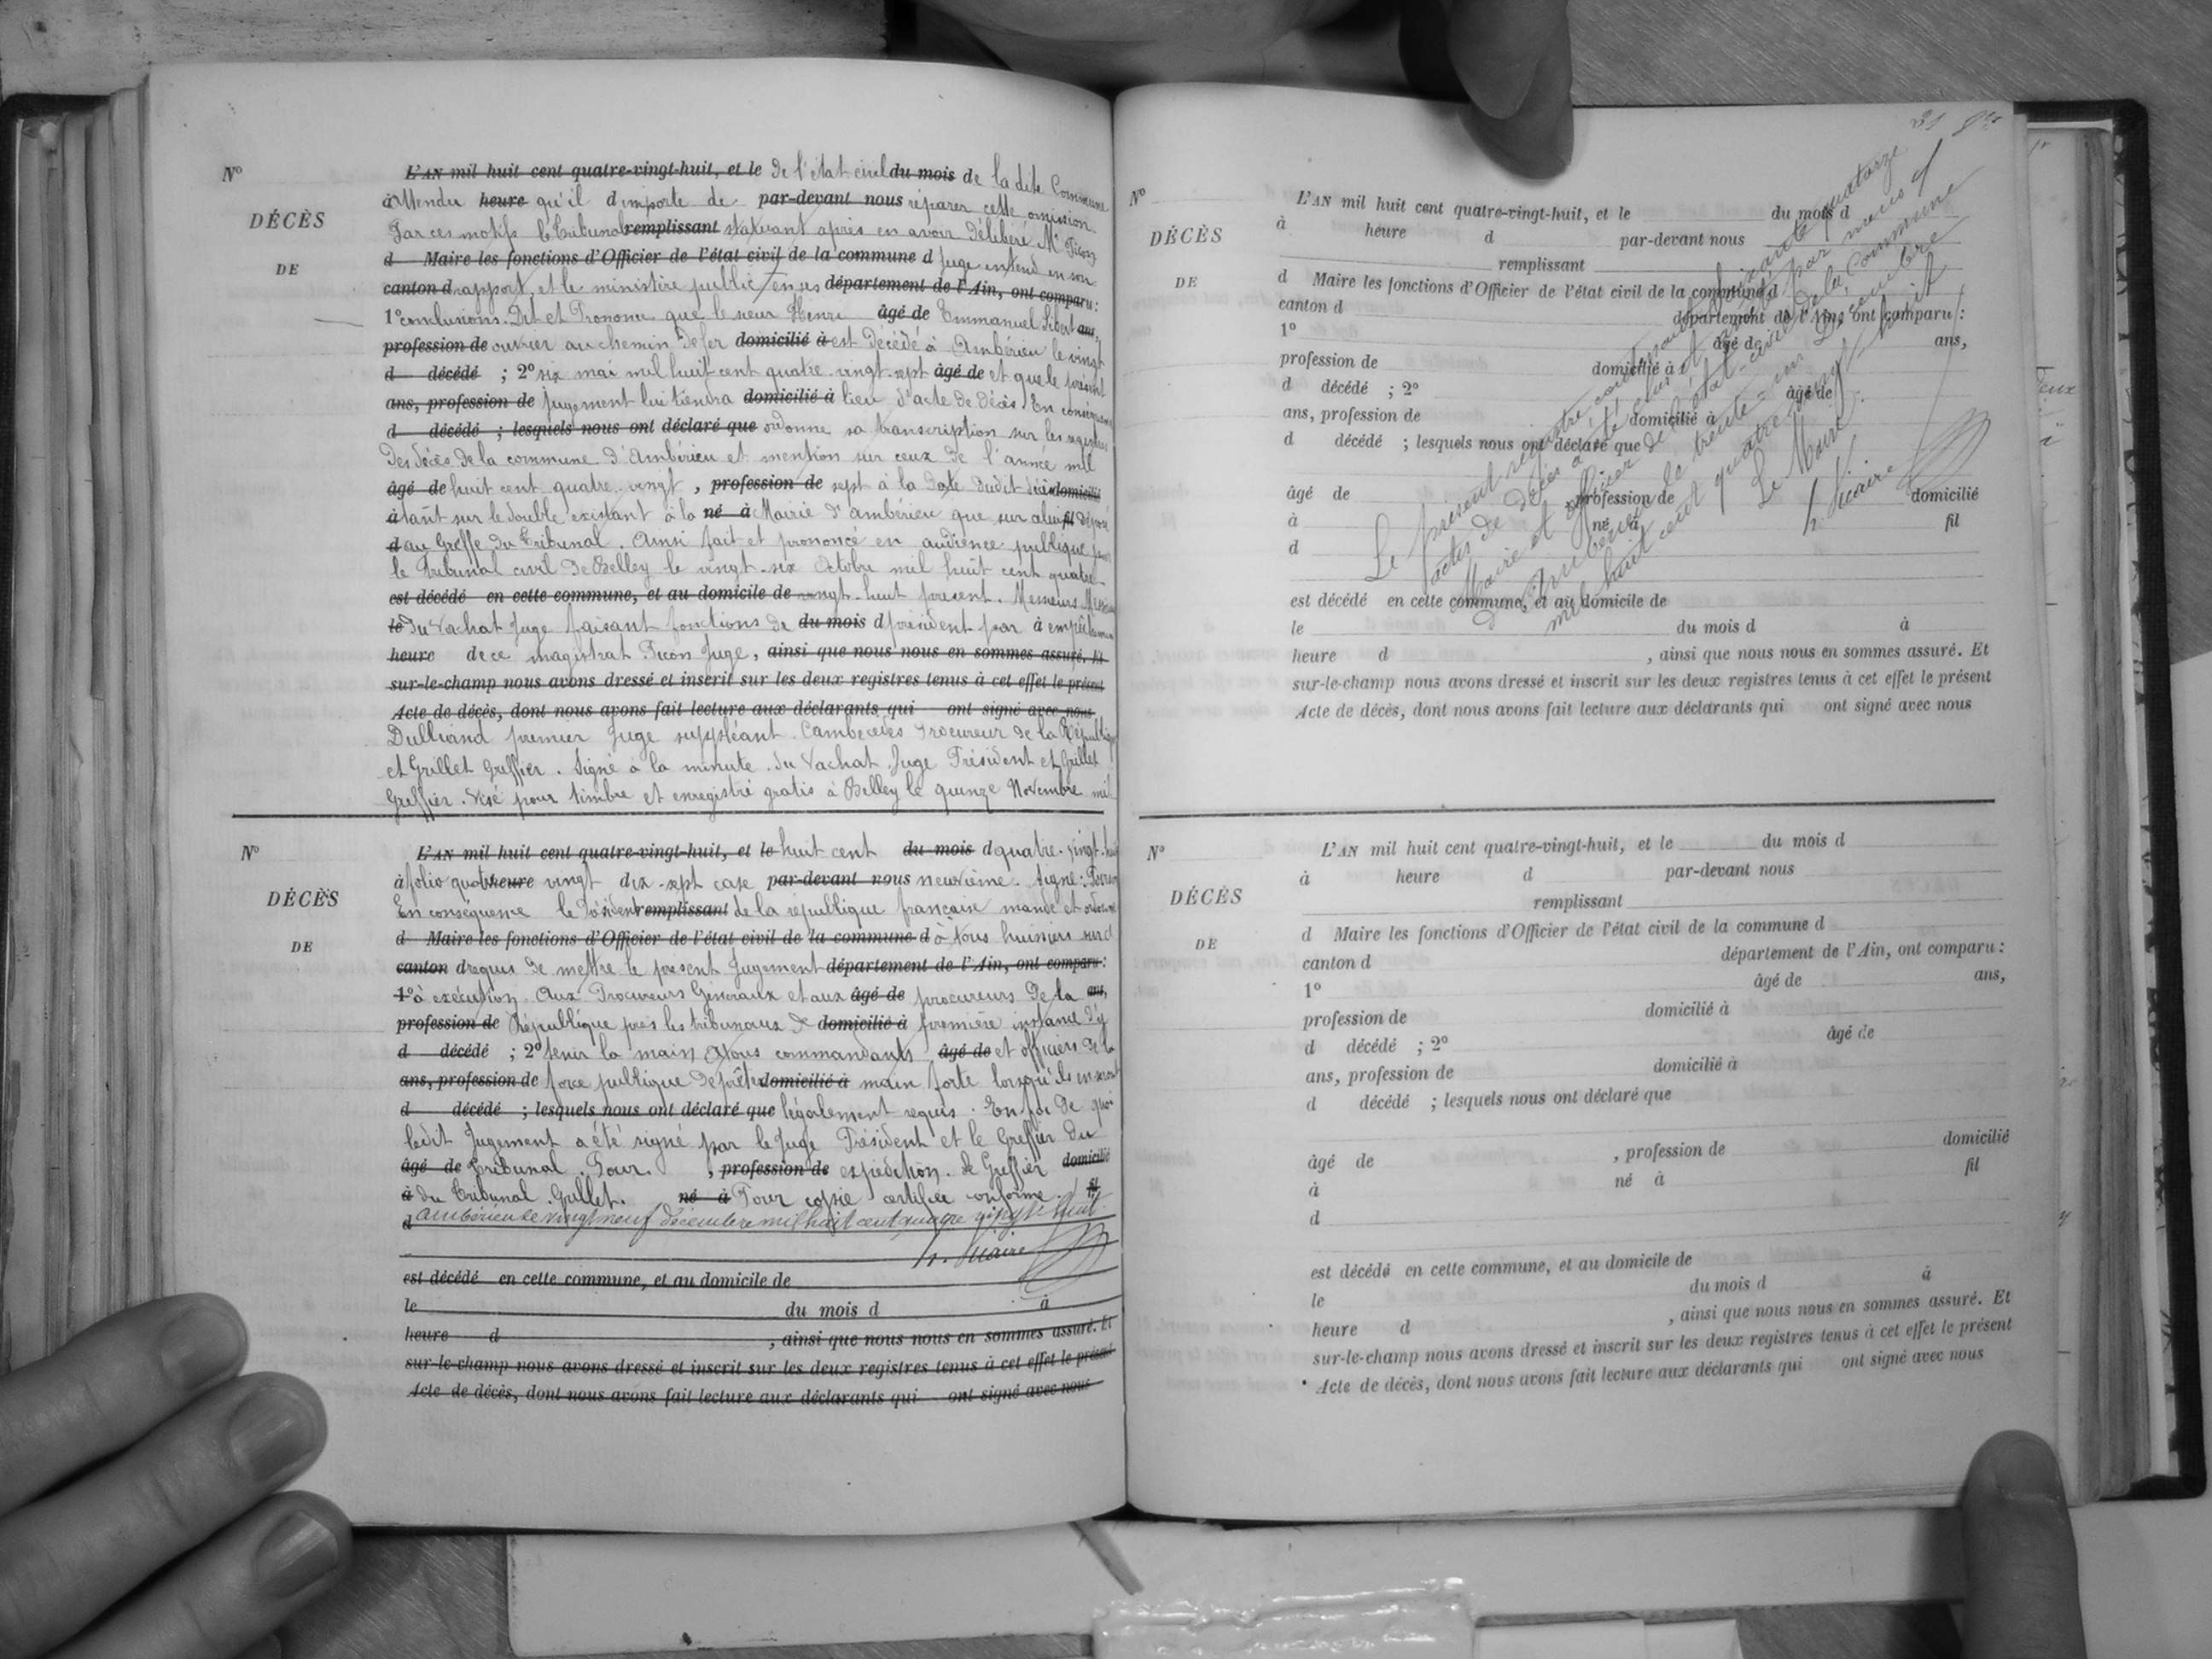 N°
DÉCÈS
DE
L'AN mil huit cent quatre-vingt-huit, et le de l'état civil du mois de la dite Commune
à Attendu heure qu'il d importe de par-devant nous réparer cette omission
Par ces motifs le Tribunal remplissant statuant après en avoir délibéré Mr Picon
d Maire les fonctions d'Officier de l'état civil de la commune d Juge entend en son
canton d rapport, et le ministère public en ses département de l'Ain, ont comparu :
1° conclusions. Dit et Prononce que le sieur Henri âgé de Emmanuel Sibert ans,
profession de ouvrier au chemin de fer domicilié à est décédé à Ambérieu le vingt
d décédé ; 2° six mai mil huit cent quatre-vingt-sept âgé de et que le présent
ans, profession de jugement lui tiendra domicilié à lieu d'acte de décès. En conséquence
d décédé ; lesquels nous ont déclaré que ordonne sa transcription sur les registres
des décès de la commune d'Ambérieu et mention sur ceux de l'année mil
âgé de huit cent quatre-vingt , profession de sept à la date dudit décès domicilié
à tant sur le double existant à la né à Mairie d'ambérieu que sur celui fil déposé
d au Greffe du Tribunal. Ainsi fait et prononcé en audience publique par
le Tribunal civil de Belley le vingt-six Octobre mil huit cent quatre-
est décédé en cette commune, et au domicile de vingt-huit présent. Messieurs
le du Vachat Juge faisant fonctions de du mois d président par à empêchement
heure d de ce magistrat Picon Juge, ainsi que nous nous en sommes assuré. Et
sur-le-champ nous avons dressé et inscrit sur les deux registres tenus à cet effet le présent
Acte de décès, dont nous avons fait lecture aux déclarants qui ont signé avec nous
Dulliand premier Juge suppléant. Cambecedes Procureur de la République
et Grillet Greffier. Signé à la minute. du Vachat Juge Président et Grillet
Greffier. Visé pour timbre et enregistré gratis à Belley le quinze Novembre mil
N°
DÉCÈS
DE
L'AN mil huit cent quatre-vingt-huit, et le huit cent du mois d quatre-vingt-huit
à folio quatre heure vingt dix-sept case par-devant nous neuvième. Signé :
En conséquence le Président remplissant de la république française mande et ordonne
d Maire les fonctions d'Officier de l'état civil de la commune d à tous huissiers sur ce
canton d requis de mettre le présent Jugement département de l'Ain, ont comparu :
1° à exécution. Aux Procureurs Généraux et aux âgé de procureurs de la ans,
profession de République près les tribunaux de domicilié à première instance d'y
d décédé ; 2° tenir la main à tous commandants âgé de et officiers de la
ans, profession de force publique de prêter domicilié à main forte lorsqu'ils en seront
d décédé ; lesquels nous ont déclaré que légalement requis. En foi de quoi
ledit Jugement a été signé par le Juge Président et le Greffier du
âgé de Tribunal. Pour , profession de expédition. Le Greffier domicilié
à du Tribunal. Grillet. né à Pour copie certifiée conforme. fil
d ambérieu le vingt neuf décembre mil huit cent quatre vingt huit
est décédé en cette commune, et au domicile de
le du mois d à
heure d , ainsi que nous nous en sommes assuré. Et
sur-le-champ nous avons dressé et inscrit sur les deux registres tenus à cet effet le présent
Acte de décès, dont nous avons fait lecture aux déclarants qui ont signé avec nous
31
N°
DÉCÈS
DE
L'AN mil huit cent quatre-vingt-huit, et le du mois d
à heure d par-devant nous
remplissant
d Maire les fonctions d'Officier de l'état civil de la commune d
canton d département de l'Ain, ont comparu :
1° âgé de ans,
profession de domicilié à
d décédé ; 2° âgé de
ans, profession de domicilié à
d décédé ; lesquels nous ont déclaré que
âgé de , profession de domicilié
à né à fil
d
est décédé en cette commune, et au domicile de
le du mois d à
heure d , ainsi que nous nous en sommes assuré. Et
sur-le-champ nous avons dressé et inscrit sur les deux registres tenus à cet effet le présent
Acte de décès, dont nous avons fait lecture aux déclarants qui ont signé avec nous
Le présent registre contenant soixante quatorze
actes de décès a été clos et arrêté par nous
Maire et officier de l'état-civil de la Commune
d'Ambérieu le trente-un Décembre
mil huit cent quatre vingt-huit
Le Maire
N°
DÉCÈS
DE
L'AN mil huit cent quatre-vingt-huit, et le du mois d
à heure d par-devant nous
remplissant
d Maire les fonctions d'Officier de l'état civil de la commune d
canton d département de l'Ain, ont comparu :
1° âgé de ans,
profession de domicilié à
d décédé ; 2° âgé de
ans, profession de domicilié à
d décédé ; lesquels nous ont déclaré que
âgé de , profession de domicilié
à né à fil
d
est décédé en cette commune, et au domicile de
le du mois d à
heure d , ainsi que nous nous en sommes assuré. Et
sur-le-champ nous avons dressé et inscrit sur les deux registres tenus à cet effet le présent
Acte de décès, dont nous avons fait lecture aux déclarants qui ont signé avec nous